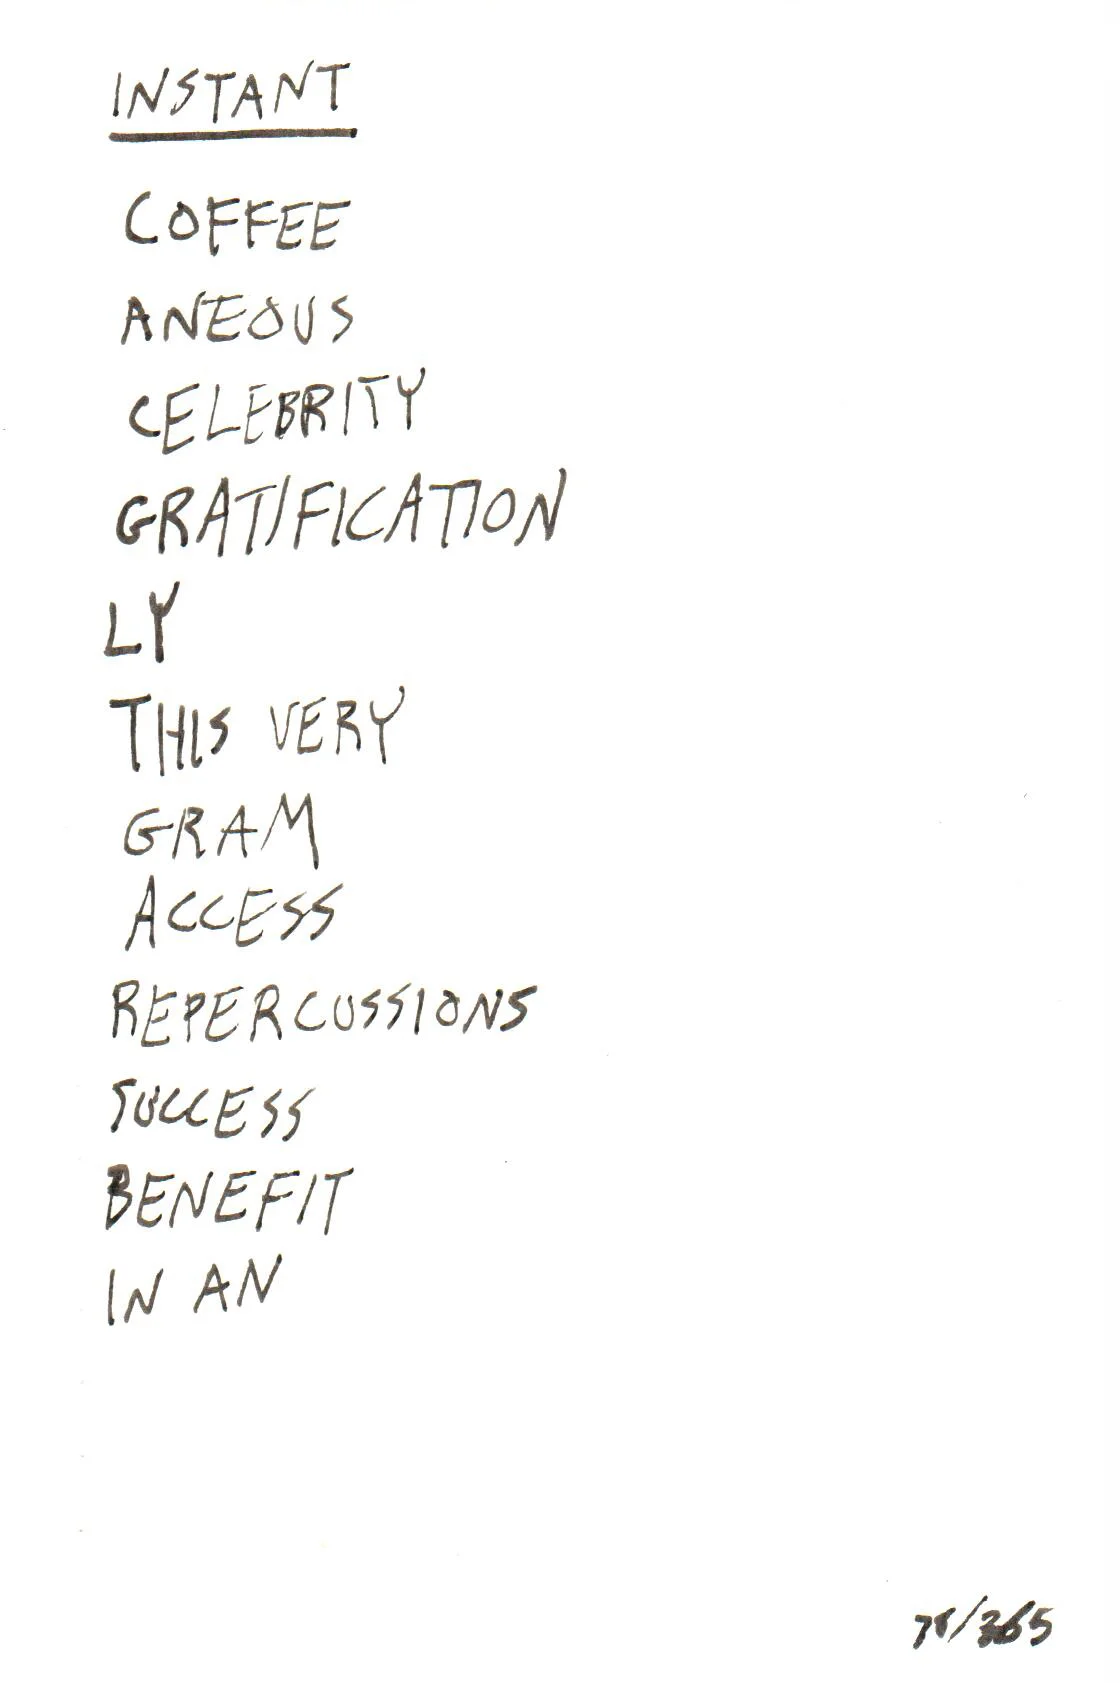 INSTANT
COFFEE
ANEOUS
CELEBRITY
GRATIFICATION
LY
THIS VERY
GRAM
ACCESS
REPERCUSSIONS
SUCCESS
BENEFIT
IN AN
78/365